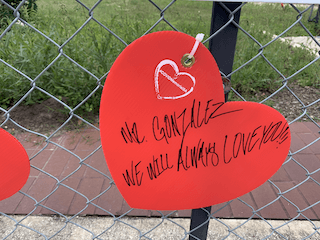 MR. GONZALEZ
WE WILL ALWAYS LOVE YOU!!